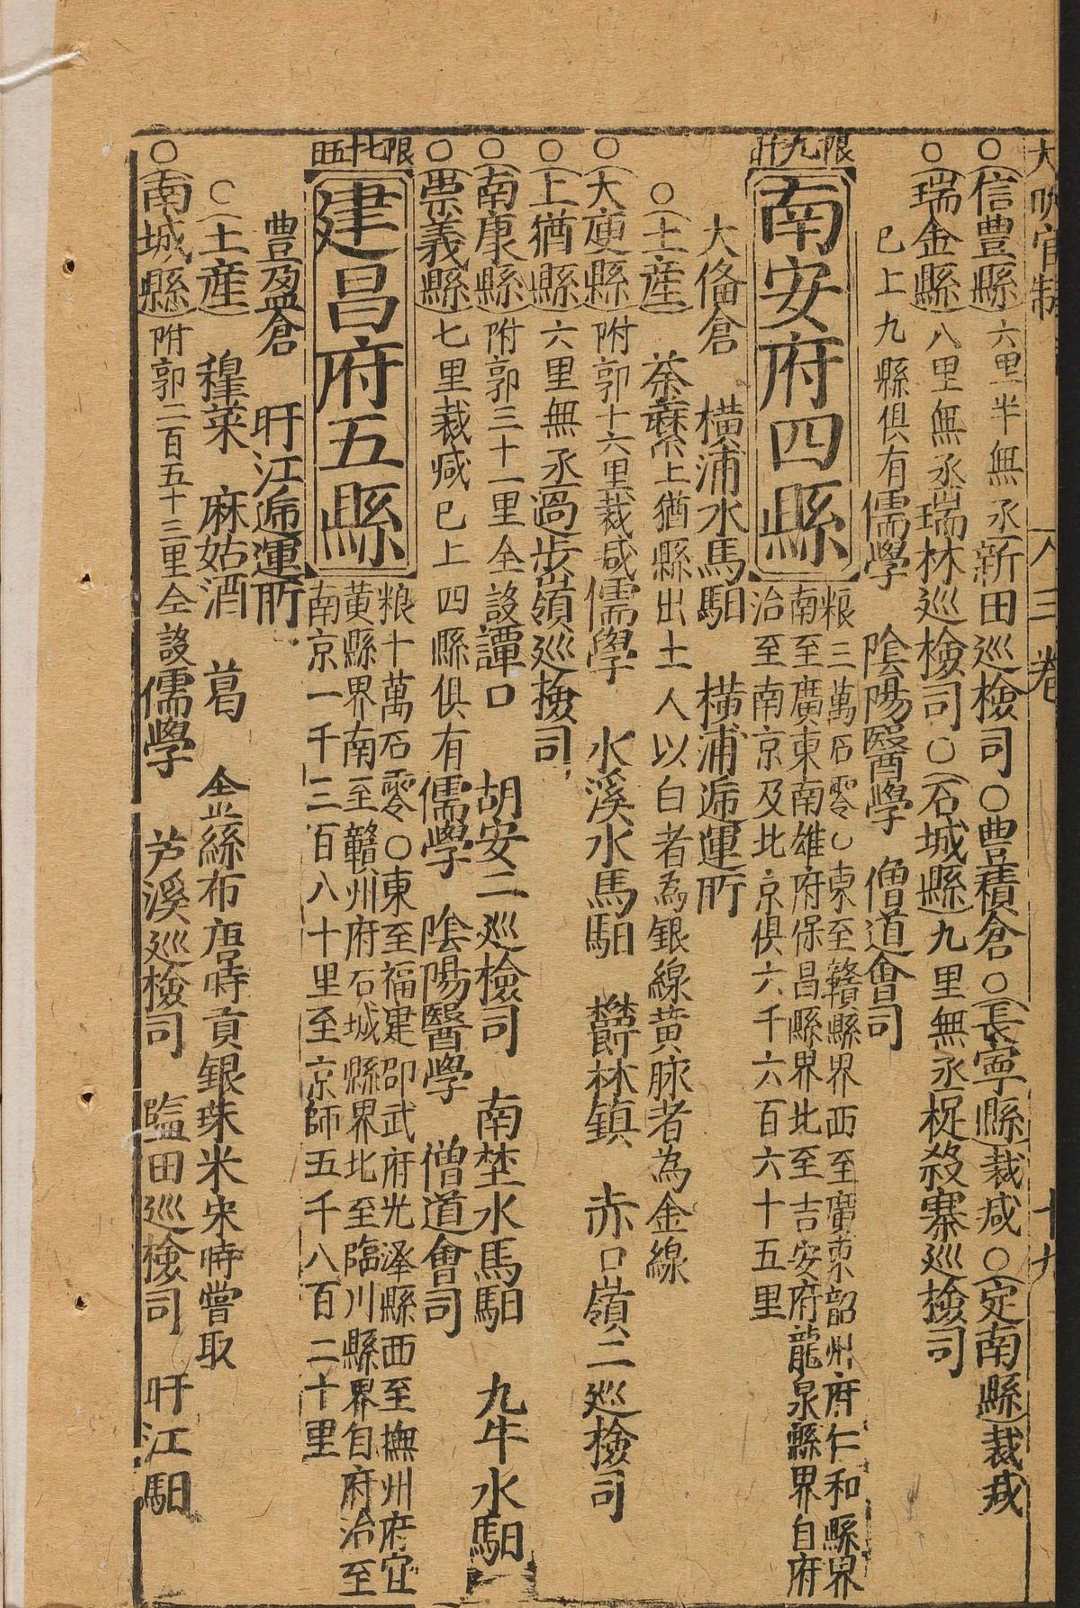 大明官制 卷三 十九
○信豊縣六里半無丞新田巡檢司○豊積倉○長寧縣裁减○定南縣裁减
○瑞金縣八里無丞瑞林巡檢司○石城縣九里無丞捉殺寨巡檢司
已上九縣俱有儒學 陰陽醫學 僧道會司
限九
南安府四縣
粮三萬石零○東至贛縣界西至廣東韶州府仁和縣界
南至廣東南雄府保昌縣界北至吉安府龍泉縣界自府
治至南京及北京俱六千六百六十五里
大俻倉 橫浦水馬馹 橫浦逓運所
○土産 茶蘪上猶縣出土人以白者為銀線黄脉者為金線
○大庾縣附郭十六里裁减儒學 水溪水馬馹 欝林鎮 赤口嶺二巡檢司
○上猶縣六里無丞過步嶺巡檢司
○南康縣附郭三十一里全設譚口 胡安二巡檢司 南埜水馬馹 九牛水馹
○崇義縣七里裁减已上四縣俱有儒學 陰陽醫學 僧道會司
限七十五
建昌府五縣
粮十萬石零○東至福建邵武府光澤縣西至撫州府宜
黄縣界南至贑州府石城縣界北至臨川縣界自府治至
南京一千三百八十里至京師五千八百二十里
豊盈倉 盱江逓運所
○土産 穜菜 麻姑酒 葛 金絲布唐時貢銀珠米宋時嘗取
○南城縣附郭二百五十三里全設儒學 芦溪巡檢司 藍田巡檢司 盱江馹